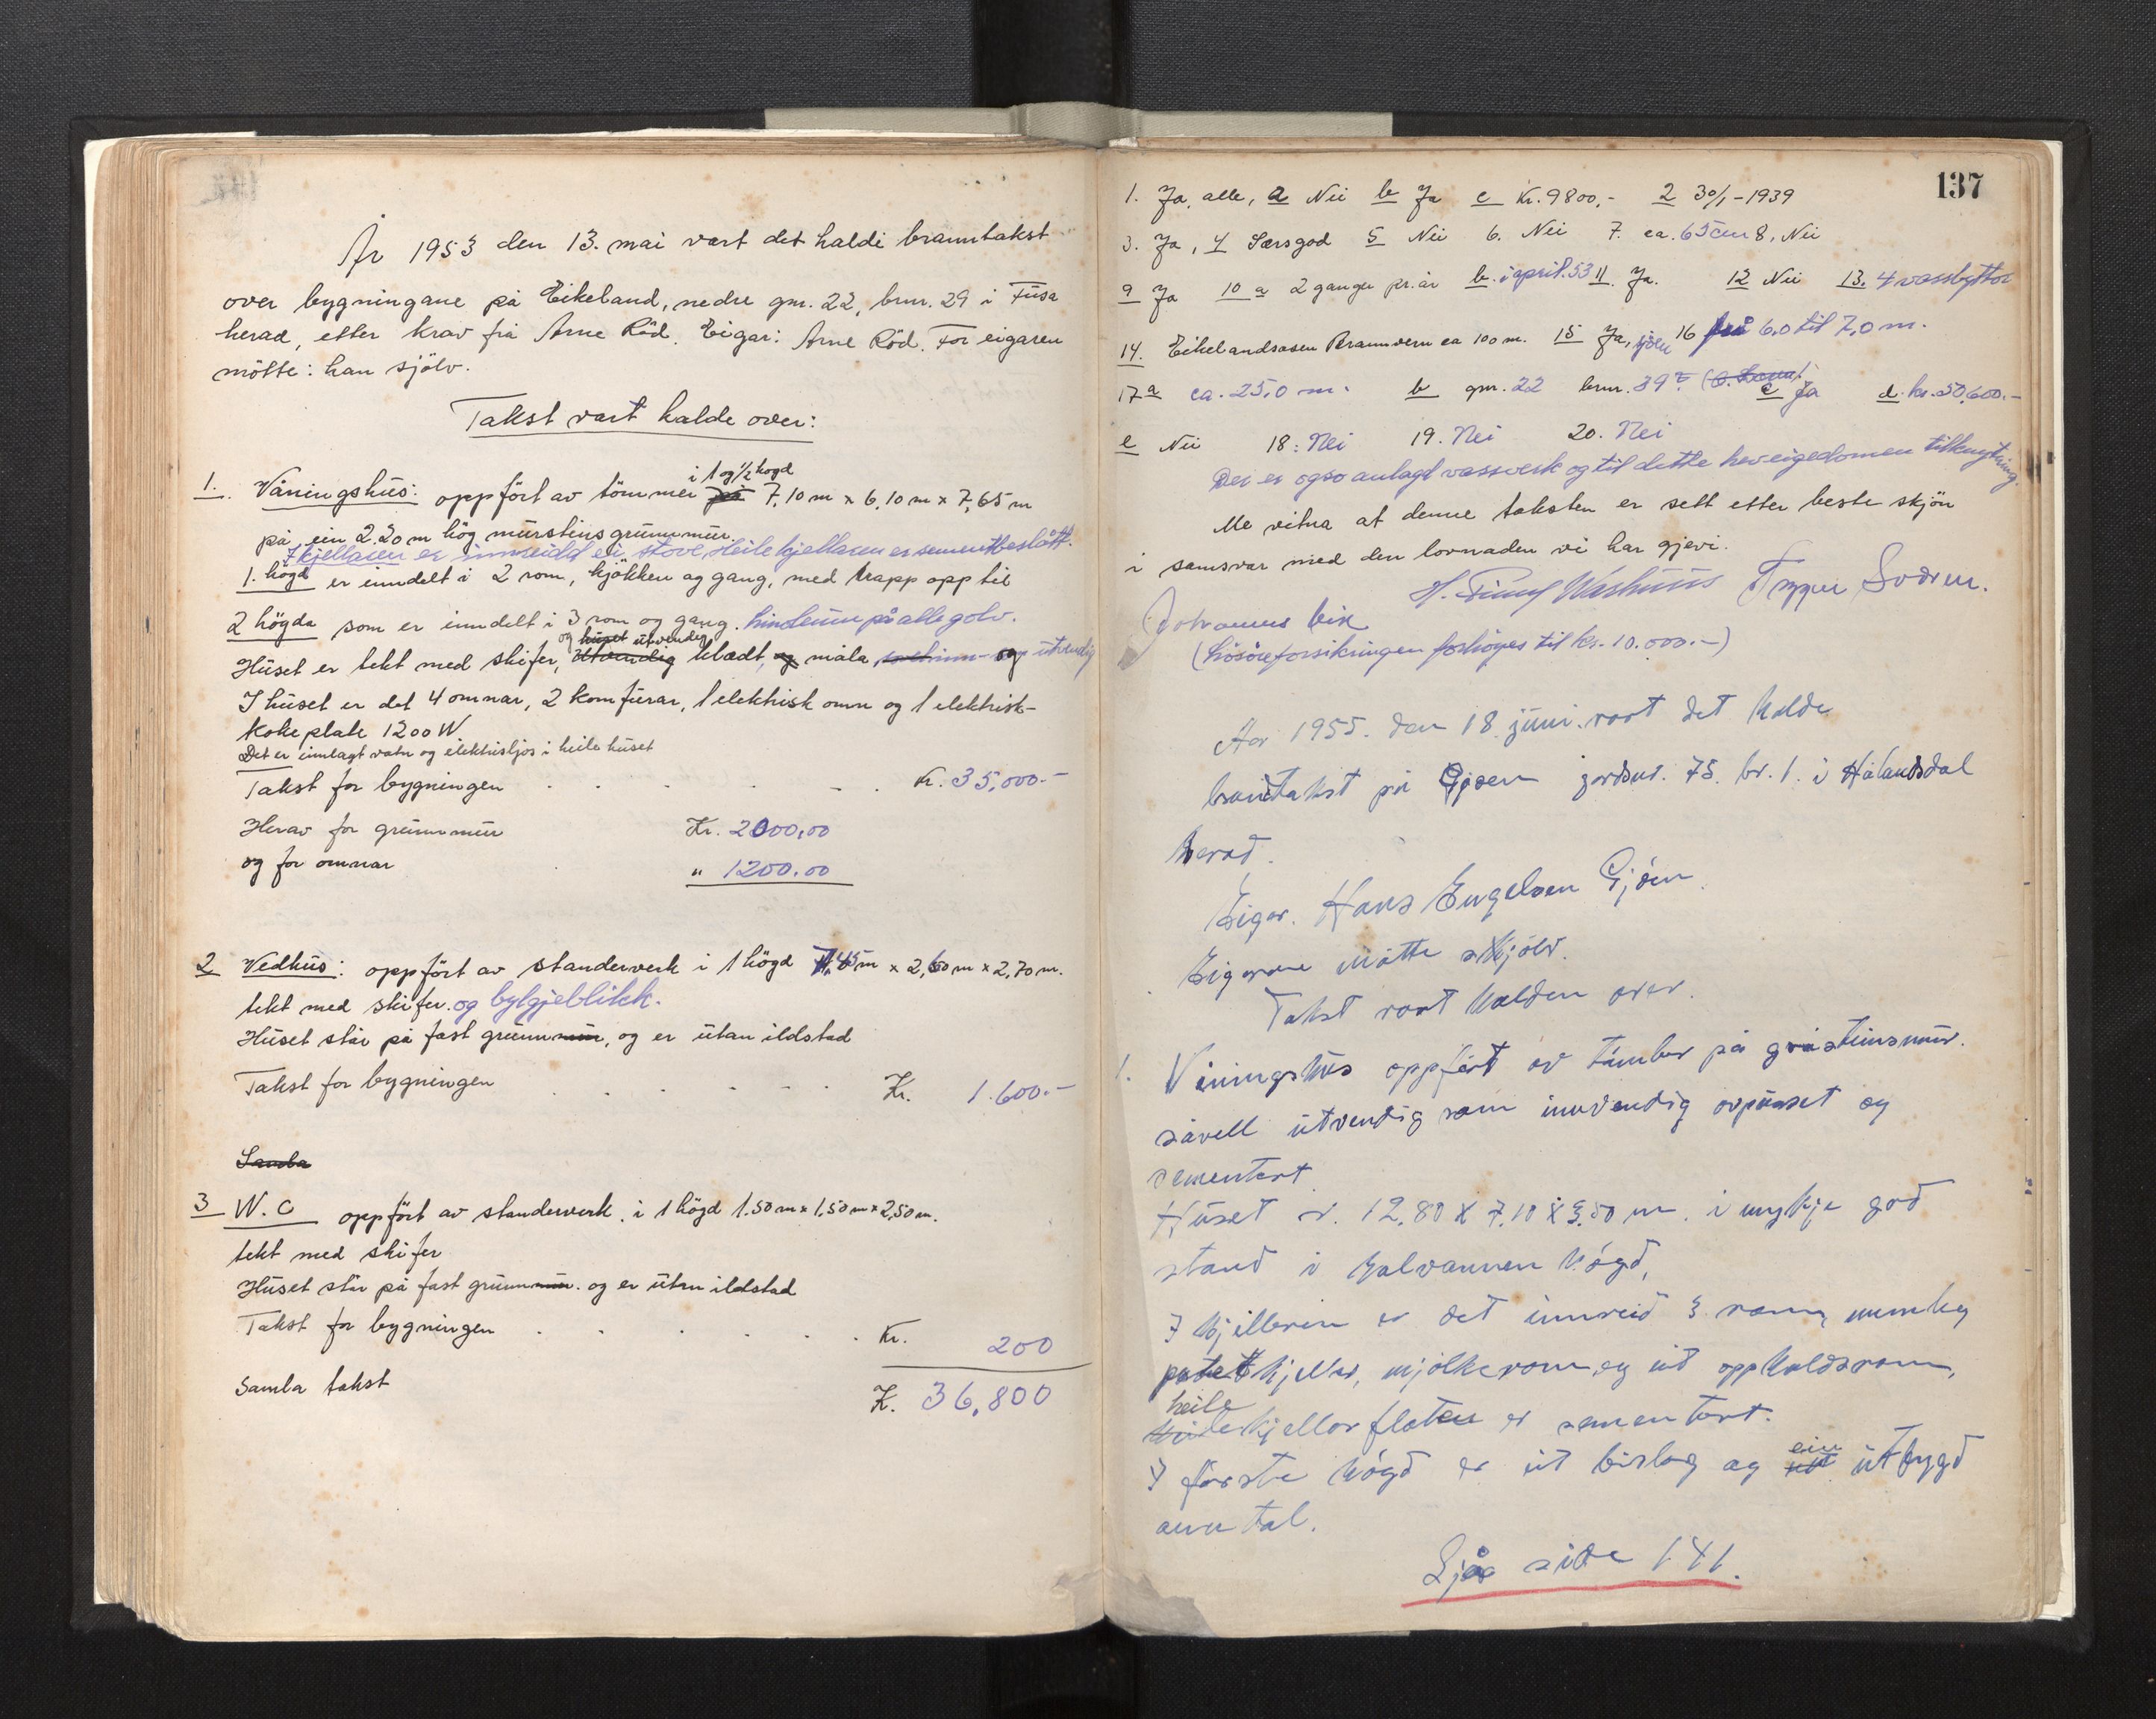 År 1953 den 13. mai vart det haldi branntakst
over bygningane på Eikeland, nedre gnr. 22, brnr. 29 i Fusa
herad, etter krav frå Arne Röd. Eigar: Arne Röd. For eigaren
mötte: han sjölv.
Takst vart halde over:
i 1 og 1/2 högd
1. Våningshus: oppfört av tömmer på 7,10 m x 6,10 m x 7,65 m
på ein 2.20 m hög murstins grunnmur.
I kjellaren er innreidd ei stove. Heile kjellaren er sementbeslått.
1. högd er inndelt i 2 rom, kjökken og gang, med trapp opp til
2 högda som er inndelt i 3 rom og gang. Linoleum på alle golv.
og huset utvendig
Huset er tekt med skifer, utvendig klædt, og måla og utvendig
I huset er det 4 omnar, 2 komfurar, 1 elektrisk omn og 1 elektrisk-
kokeplate 1200 W.
Det er innlagt vatn og elektrisljos i heile huset
Takst for bygningen . . . . . Kr. 35,000.-
Herav for grunnmur Kr. 2000,00
og for omnar " 1200.00
2 Vedhus: oppfört av standerverk i 1 högd 7,45 m x 2,60 m x 2,70 m.
tekt med skifer. og bylgjeblikk.
Huset står på fast grunnmur, og er utan ildstad
Takst for bygningen . . . . . Kr. 1.600.-
Samla
3 W.C oppfört av standerverk. i 1 högd 1.50 m x 1,50 m x 2,50 m.
tekt med skifer
Huset står på fast grunnmur. og er utan ildstad
Takst for bygningen . . . . . Kr. 200
Samla takst K. 36,800
137
1. Ja, alle, a Nei b Ja c Kr. 9800,- 2 30/1-1939
3. Ja, 4 Særsgod 5 Nei 6. Nei 7. ca. 65 cm 8, Nei
9 Ja 10 a 2 gangu pr. år b. i april. 53 11. Ja. 12 Nei 13. 4 vassbyttor
14. Eikelandsosen Brannvern ca 100 m. 15 Ja, sjöen 16 frå 6.0 til 7,0 m.
17 a ca. 25,0 m. b gnr. 22 brnr. 39 c Ja d. kr. 50,600.-
e Nei 18: Nei 19. Nei 20. Nei
Der er ogso anlagd vassverk og til dette hev eigedomen tilknytning.
Me vitna at denne taksten er sett etter beste skjön
i samsvar med den lovnaden vi har gjevi.
Johannes Eik
(lösöreforsikringen forhöges til kr. 10.000.-)
Aar 1955. den 18 juni. vart det halde
branntakst på Gjøen jordnr. 75. br. 1. i Hålandsdal
herad.
Eigar. Hans Engelsen Gjöen.
Eigaren mötte sjölv.
Takst vart halden over.
1. Våningshus oppfört av tömber på gråsteinsmur.
såvell utvendig som innvendig avpusset og
sementert
Huset er. 12,80 x 7,10 x 5,50 m. i mykje god
stand i halvannen högd,
I kjelleren er det innreid 3 rom, nemleg
potetkjeller, mjölkerom, og eit oppholdsrom,
heile
kjellarflaten er sementert.
ein
I förste högd er eit bislag og eit utbygd
anntal.
Sjå side 141.